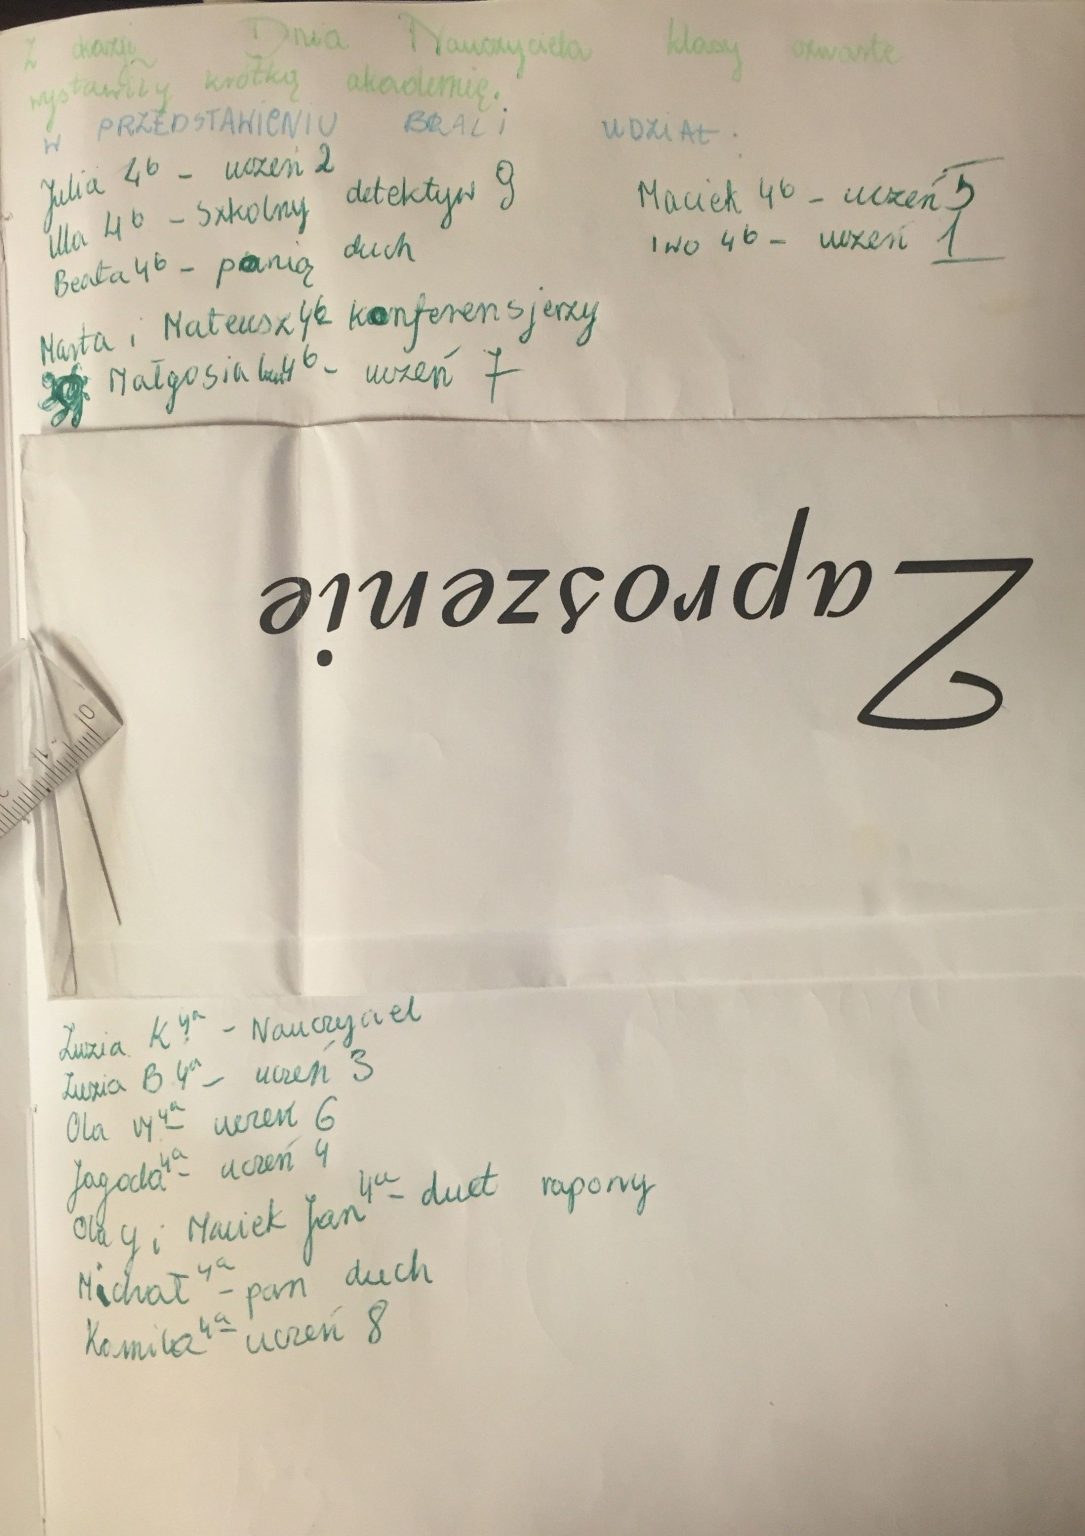 Z okazji Dnia Nauczyciela klasy czwarte
wystawiły krótką akademię.
W PRZEDSTAWIENIU BRALI UDZIAŁ:
Julia 4b - uczeń 2
Ula 4b - Szkolny detektyw 9
Beata 4b - panią duch
Marta i Mateusz 4b konferensjerzy
Małgosia 4b - uczeń 7
Maciek 4b - uczeń 5
Iwo 4b - uczeń 1
Zaproszenie
10
Zuzia K 4a - Nauczyciel
Zuzia B 4a - uczeń 3
Ola W 4a - uczeń 6
Jagoda 4a - uczeń 4
Ola y i Maciek Jan 4a - duet rapowy
Michał 4a - pan duch
Kamila 4a - uczeń 8